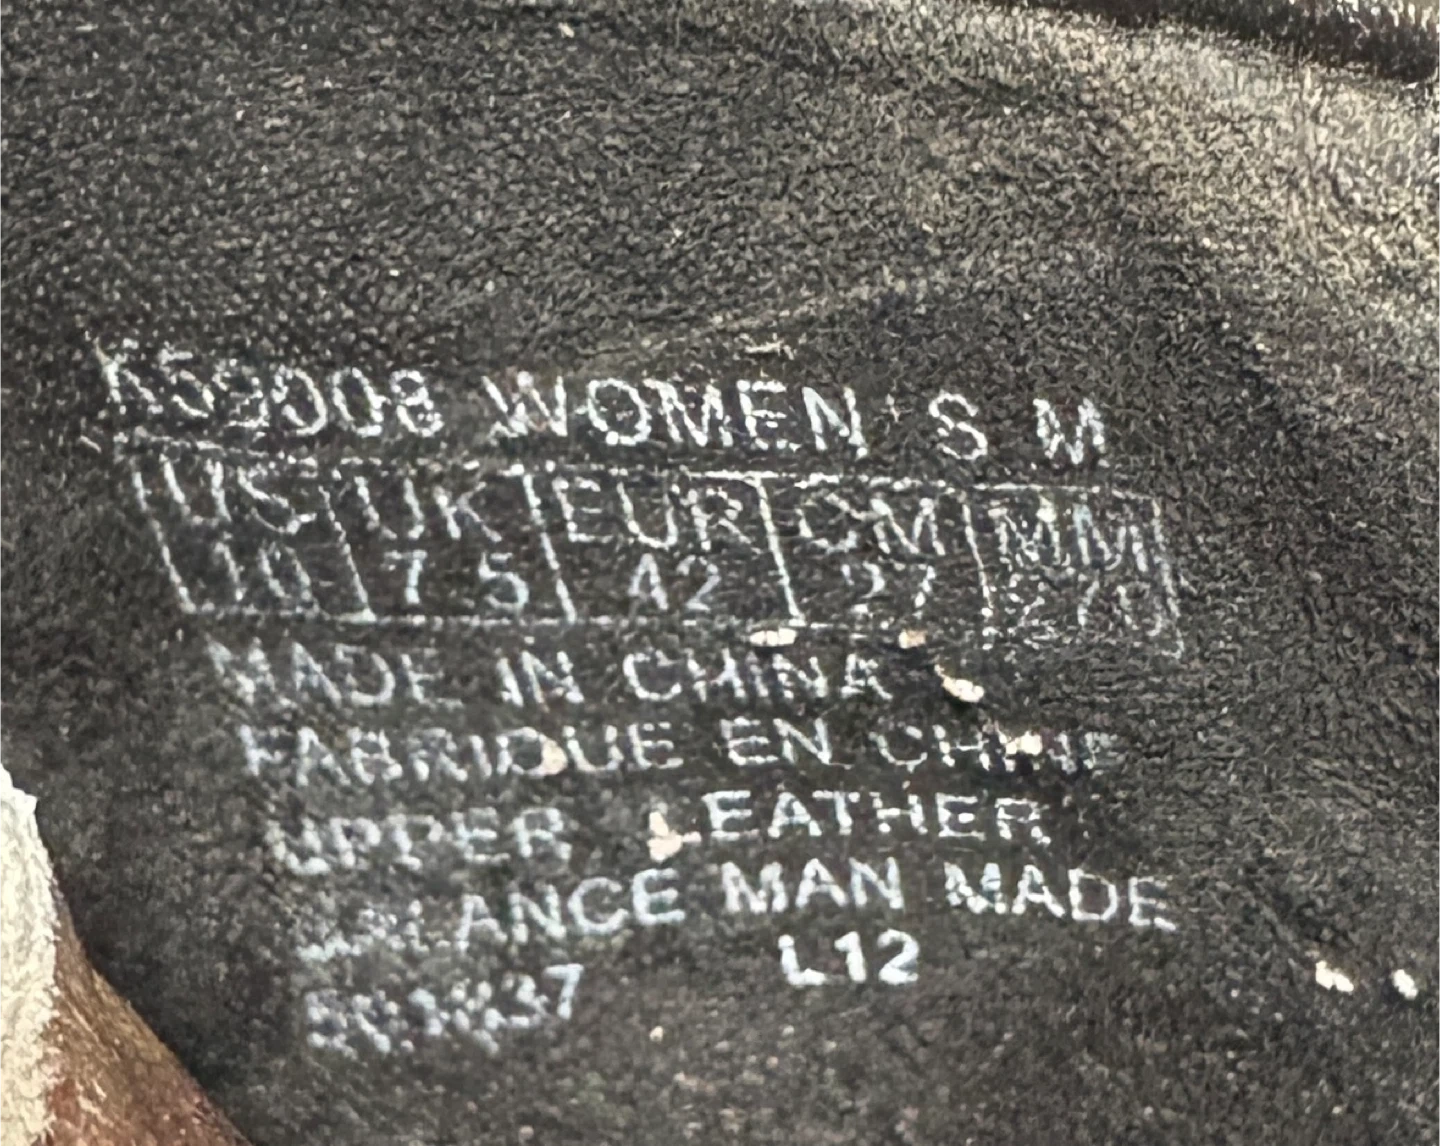 K59008 WOMEN S M
US UK EUR CM MM
10 7.5 42 27 270
MADE IN CHINA
FABRIQUE EN CHINE
UPPER LEATHER
BALANCE MAN MADE
L12